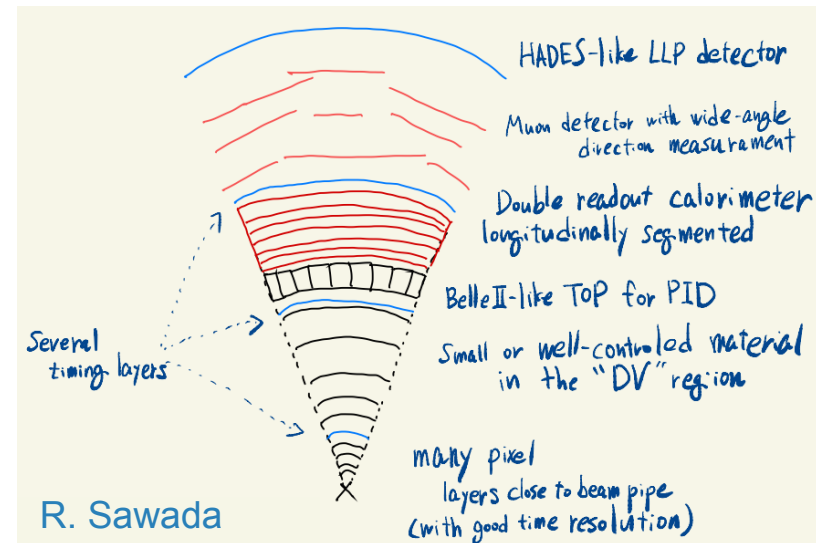 HADES-like LLP detector
Muon detector with wide-angle
direction measurament
Double readout calorimeter
longitudinally segmented
Belle II-like TOP for PID
Several
timing layers
Small or well-controled material
in the "DV" region
many pixel
layers close to beam pipe
(with good time resolution)
R. Sawada